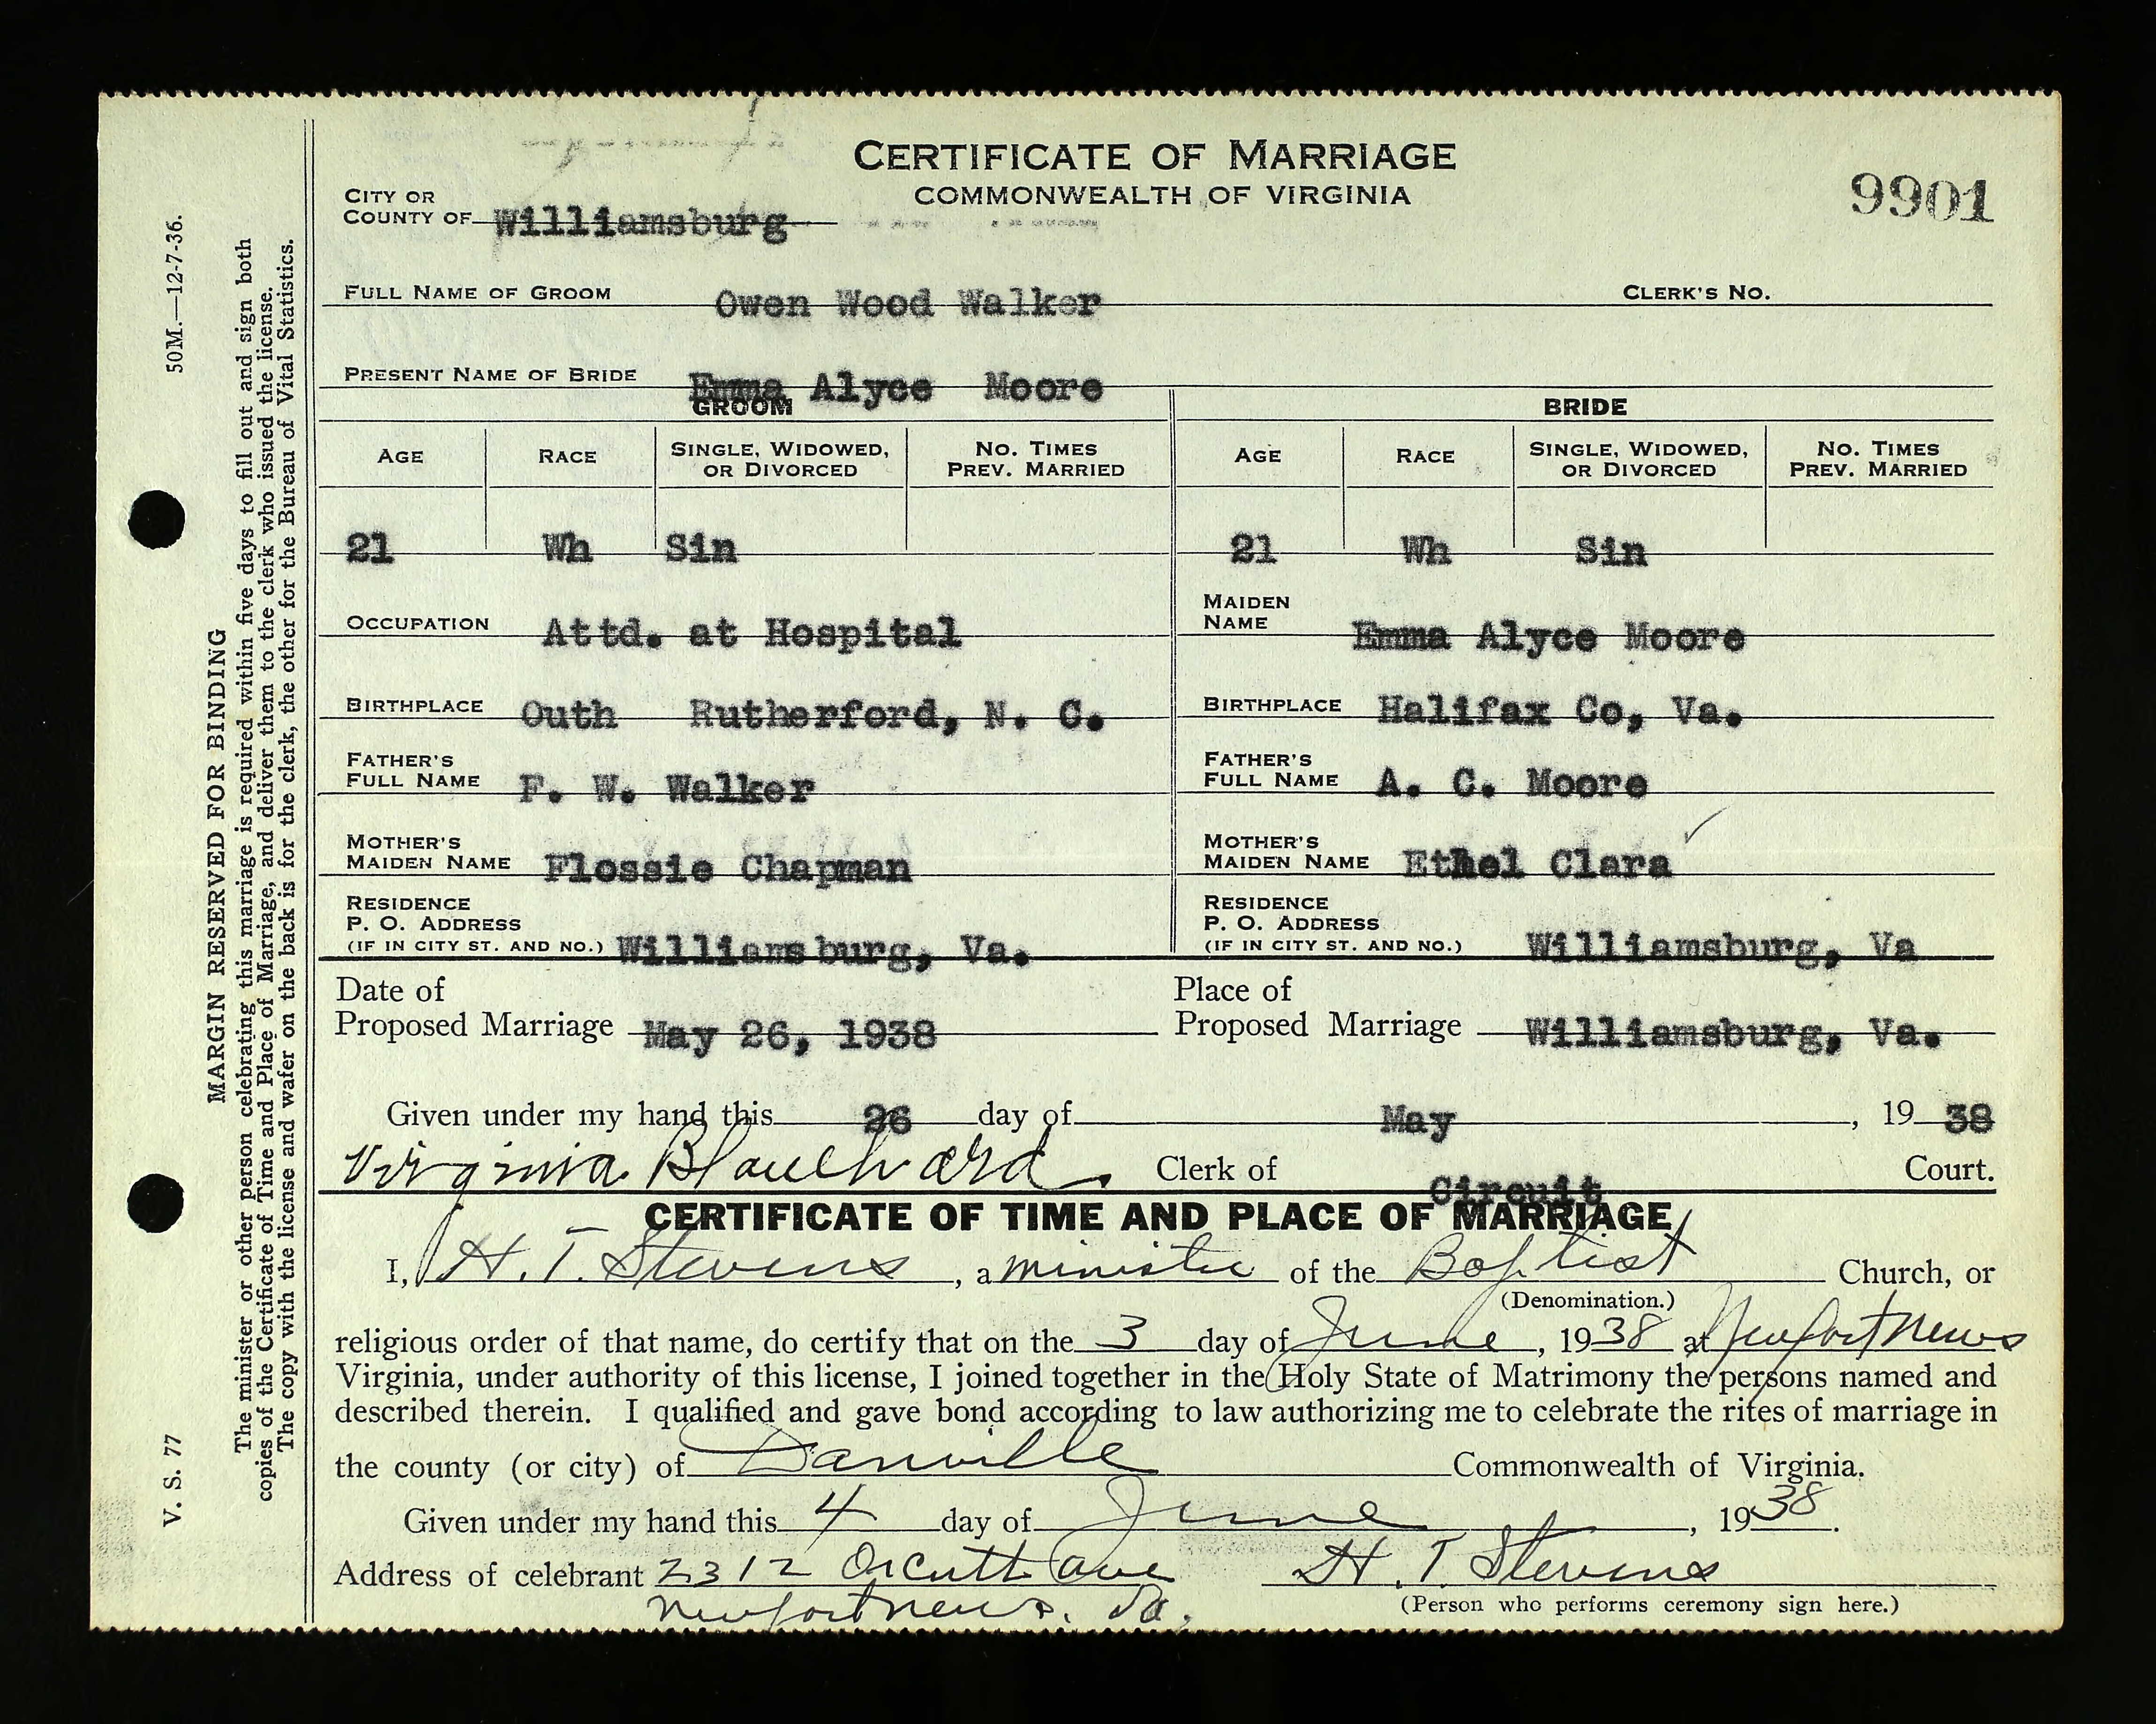 CERTIFICATE OF MARRIAGE
COMMONWEALTH OF VIRGINIA
9901
CITY OR
COUNTY OF Williamsburg
FULL NAME OF GROOM Owen Wood Walker CLERK'S NO.
PRESENT NAME OF BRIDE Emma Alyce Moore
GROOM BRIDE
AGE RACE SINGLE, WIDOWED, OR DIVORCED NO. TIMES PREV. MARRIED AGE RACE SINGLE, WIDOWED, OR DIVORCED NO. TIMES PREV. MARRIED
21 Wh Sin 21 Wh Sin
OCCUPATION Attd. at Hospital MAIDEN NAME Emma Alyce Moore
BIRTHPLACE Outh Rutherford, N. C. BIRTHPLACE Halifax Co, Va.
FATHER'S FULL NAME F. W. Walker FATHER'S FULL NAME A. C. Moore
MOTHER'S MAIDEN NAME Flossie Chapman MOTHER'S MAIDEN NAME Ethel Clara
RESIDENCE P. O. ADDRESS (IF IN CITY ST. AND NO.) Williamsburg, Va. RESIDENCE P. O. ADDRESS (IF IN CITY ST. AND NO.) Williamsburg, Va
Date of Proposed Marriage May 26, 1938 Place of Proposed Marriage Williamsburg, Va.
Given under my hand this 26 day of May, 19 38
Virginia Blanchard Clerk of Circuit Court.
CERTIFICATE OF TIME AND PLACE OF MARRIAGE
I, H. T. Stevens, a minister of the Baptist Church, or
(Denomination.)
religious order of that name, do certify that on the 3 day of June, 1938 at Newport News
Virginia, under authority of this license, I joined together in the Holy State of Matrimony the persons named and
described therein. I qualified and gave bond according to law authorizing me to celebrate the rites of marriage in
the county (or city) of Danville Commonwealth of Virginia.
Given under my hand this 4 day of June, 1938.
Address of celebrant 2312 Orcutt Ave H. T. Stevens
Newport News. Va. (Person who performs ceremony sign here.)
50M.—12-7-36.
V. S. 77
MARGIN RESERVED FOR BINDING
The minister or other person celebrating this marriage is required within five days to fill out and sign both
copies of the Certificate of Time and Place of Marriage, and deliver them to the clerk who issued the license.
The copy with the license and wafer on the back is for the clerk, the other for the Bureau of Vital Statistics.